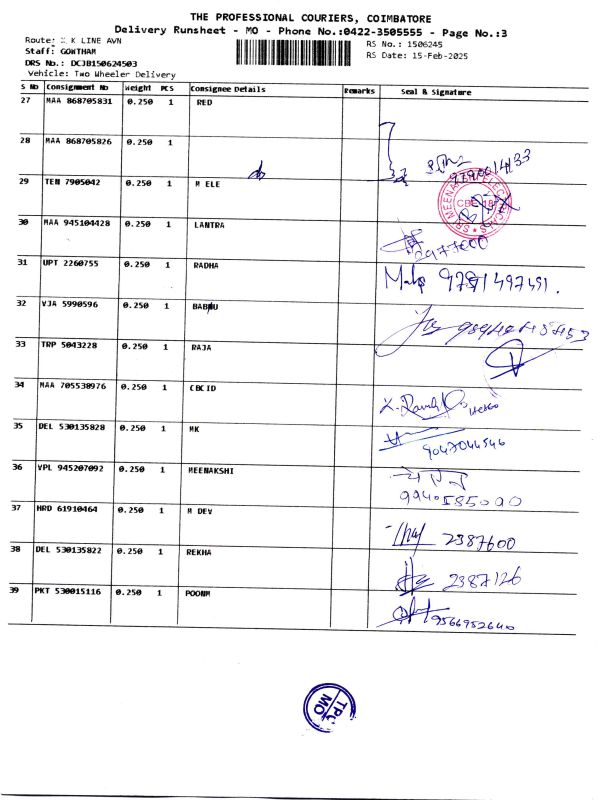 THE PROFESSIONAL COURIERS, COIMBATORE
Delivery Runsheet - MO - Phone No.:0422-3505555 - Page No.:3
Route: K LINE AVN
RS No.: 1506245
Staff: GOWTHAM
RS Date: 15-Feb-2025
DRS No.: DCJB150624503
Vehicle: Two Wheeler Delivery
S No Consignment No Weight PCS Consignee Details Remarks Seal & Signature
27 MAA 868705831 0.250 1 RED
28 MAA 868705826 0.250 1
29 TEN 7905042 0.250 1 M ELE
30 MAA 945104428 0.250 1 LANTRA 2977600
31 UPT 2260755 0.250 1 RADHA
32 VJA 5990596 0.250 1
33 TRP 5043228 0.250 1 RAJA
34 MAA 705538976 0.250 1 CBCID
35 DEL 530135828 0.250 1 MK 9047044546
36 VPL 945207092 0.250 1 MEENAKSHI 9940585000
37 HRD 61910464 0.250 1 M DEV 2387600
38 DEL 530135822 0.250 1 REKHA 2387126
39 PKT 530015116 0.250 1 POONM 9566952640
MO